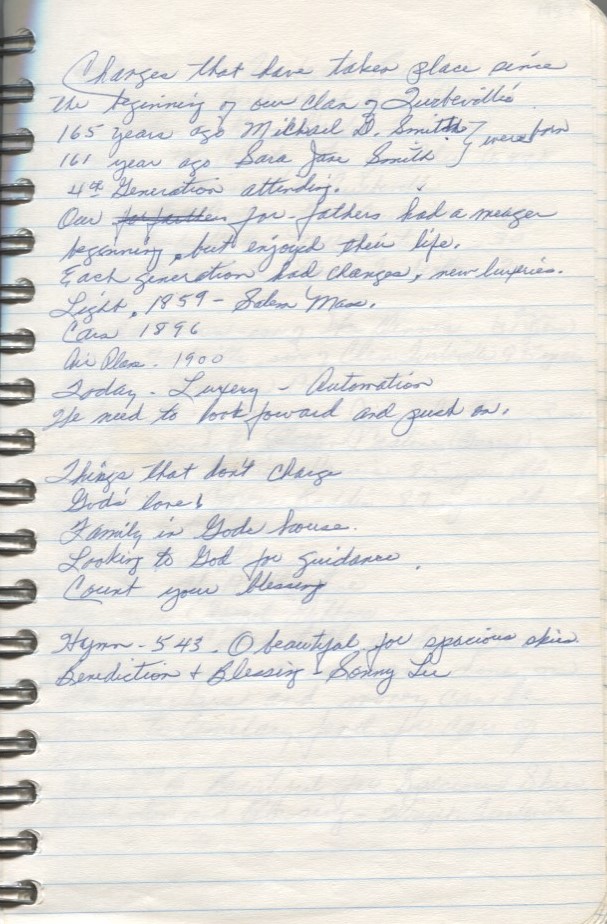 Changes that have taken place since
the beginning of our clan of Turbeville's
165 years ago Michael D. Smith } were born
161 year ago Sara Jane Smith
4th Generation attending.
Our for-fathers had a meager
beginning, but enjoyed their life.
Each generation had changes, new luxeries.
Light, 1859 - Salem Mass.
Cars 1896
Air Plane - 1900
Today - Luxery - Automation
We need to look forward and push on.
Things that don't change
God's love!
Family in Gods house.
Looking to God for guidance.
Count your blessing
Hymn - 543. O beautiful for spacious skies
Benediction + Blessing - Sonny Lee